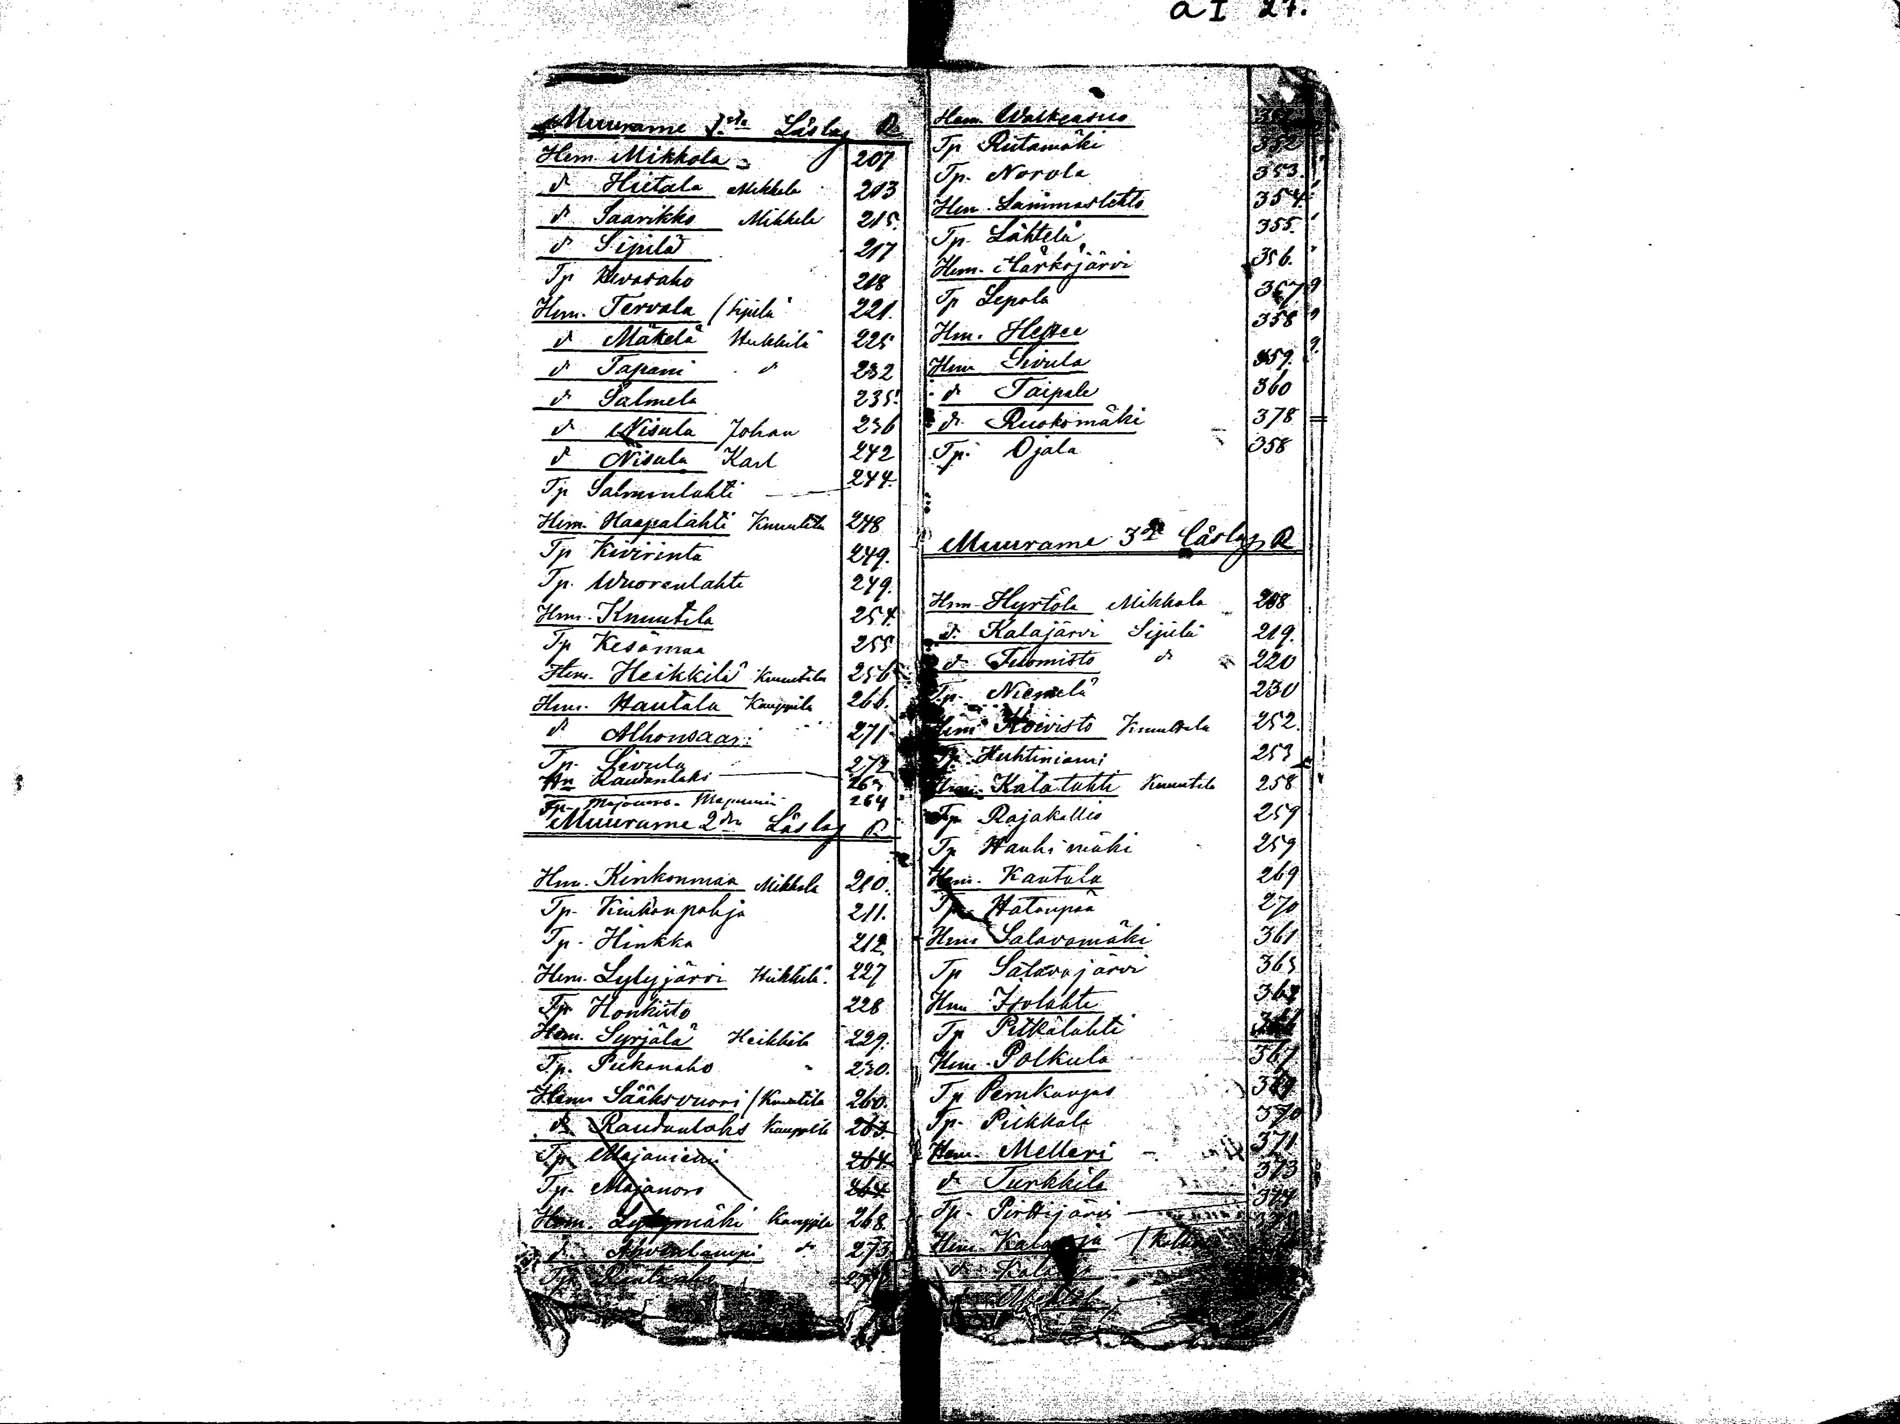 a I 27.
Muurame 1sta Låslag R
Hem Mikkola 207
d Hietala Mikkola 213
d Saarikko Mikkola 215.
d Sipilä 217
Tp 218
Hem. Tervala / Sipilä 221.
d Mäkelä Heikkilä 225
d Tapani d 232
d Salmela 235.
d Nisula Johan 236
d Nisula Karl 242
Tp Salmenlahti 244.
Hem. Haapalahti Knuutila 248
Tp Kivirinta 249.
Tp. Wuorenlahti 249.
Hem. Knuutila 254.
Tp Kesämaa 255
Hem. Heikkilä Knuutila 256
Hem. Hautala Kauppila 266.
d Alhonsaari 271
Tp. Sivula 272
Hn Raudanlaks 263
Tp. Majanoro - Majaniemi 264
Muurame 2dra Låslag R
Hem. Kinkonmaa Mikkola 210.
Tp. Kinkonpohja 211.
Tp. Hinkka 212
Hem. Lylyjärvi Heikkilä 227
Tp Honkisto 228
Hem. Syrjälä Heikkilä 229.
Tp. Pukanaho 230.
Hem Sääksvuori / Knuutila 260.
d Raudanlaks Kauppila 263.
Tp. Majaniemi 264.
Tp. Majanoro 264
Hem. Lylymäki Kauppila 268
d Ahvenlampi d 273
Tp Rautaaho
Hem. Walkeasuo 351
Tp Riitamäki 352
Tp. Norola 353.
Hem. Lammaslehto 354.
Tp. Lähtelä 355.
Hem. Härköjärvi 356.
Tp Lepola 357
Hm. Hepee 358
Hem Sivula 359.
d Taipale 360
d Ruokomäki 378
Tp. Ojala 358
Muurame 3e Låslag R
Hem. Hyrtölä Mikkola 208
d. Kalajärvi Sipilä 219.
d Tuomisto d 220
Tp. Niemelä 230
Hem Koivisto Knuutila 252.
Tp. Huhtiniemi 253
Hem. Kalalahti Knuutila 258
Tp Rajakallio 259
Tp Hauhimäki 259
Hem. Kautala 269
Tp. Hatanpää 270
Hem Salavamäki 361
Tp Salavajärvi 363
Hem Isolahti
Tp Pitkälahti 366
Hem. Polkula 367
Tp Perukangas 369
Tp. Pikkala 370
Hem. Melleri 371
d Turkkila 373
Tp. Pirttijärvi 374
Hem. Kalaoja